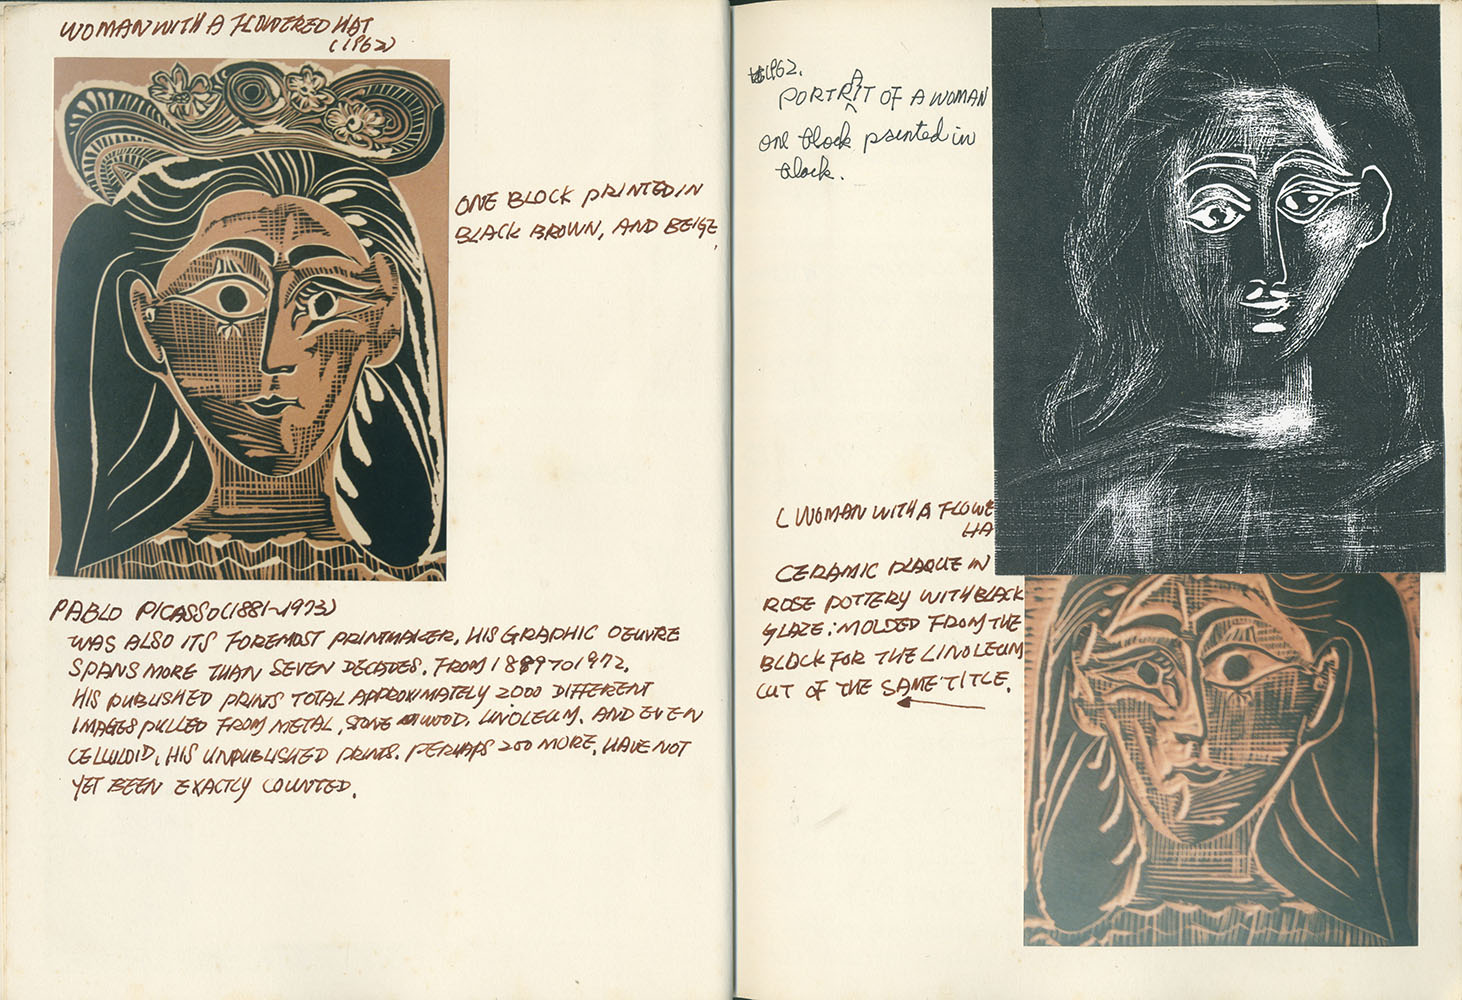 WOMAN WITH A FLOWERED HAT
(1962)
ONE BLOCK PRINTED IN
BLACK BROWN, AND BEIGE,
PABLO PICASSO (1881~1973)
WAS ALSO ITS FOREMOST PRINTMAKER. HIS GRAPHIC OEUVRE
SPANS MORE THAN SEVEN DECADES. FROM 1889 TO 1972.
HIS PUBLISHED PRINTS TOTAL APPROXIMATELY 2000 DIFFERENT
IMAGES PULLED FROM METAL, STONE WOOD. LINOLEUM. AND EVEN
CELLULOID, HIS UNPUBLISHED PRINTS. PERHAPS 200 MORE, HAVE NOT
YET BEEN EXACTLY COUNTED.
1962.
PORTRAIT OF A WOMAN
one block painted in
black.
( WOMAN WITH A FLOWE
HA
CERAMIC PLAQUE IN
ROSE POTTERY WITH BLACK
GLAZE: MOLDED FROM THE
BLOCK FOR THE LINOLEUM
CUT OF THE SAME TITLE.